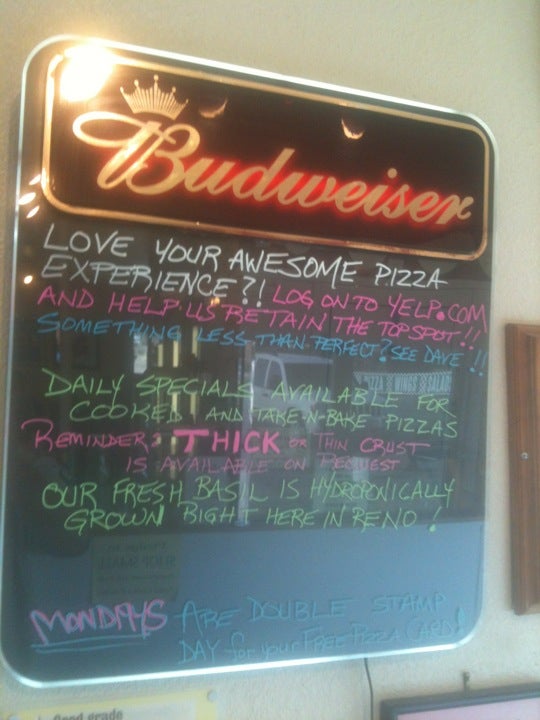 Budweiser
LOVE YOUR AWESOME PIZZA
EXPERIENCE?! LOG ON TO YELP.COM
AND HELP US RETAIN THE TOP SPOT!!
SOMETHING LESS THAN PERFECT? SEE DAVE!!
DAILY SPECIALS AVAILABLE FOR
COOKED AND TAKE-N-BAKE PIZZAS
REMINDER: THICK OR THIN CRUST
IS AVAILABLE ON REQUEST
OUR FRESH BASIL IS HYDROPONICALLY
GROWN RIGHT HERE IN RENO!
MONDAYS ARE DOUBLE STAMP
DAY for your FREE PIZZA CARD!
Food grade